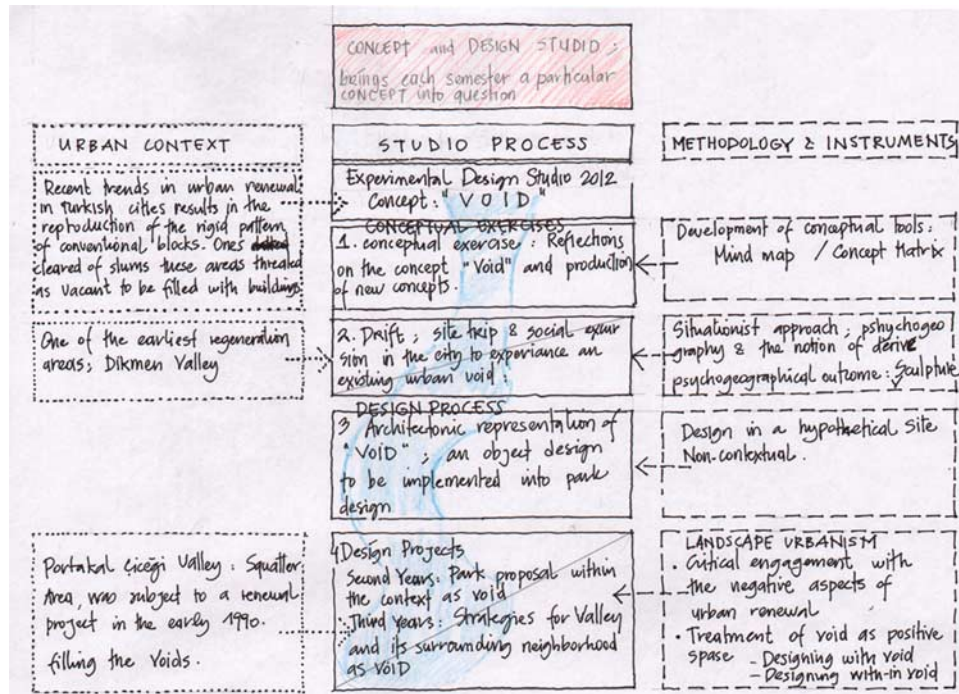 CONCEPT and DESIGN STUDIO :
beings each semester a particular
CONCEPT into question
URBAN CONTEXT
Recent trends in urban renewal
in turkish cities results in the
reproduction of the rigid pattern
of conventional blocks. Ones
cleared of slums these areas threaded
as vacant to be filled with buildings
One of the earliest regeneration
areas; Dikmen Valley
Portakal Çiçeği Valley : Squatter
Area, was subject to a renewal
project in the early 1990.
filling the Voids.
STUDIO PROCESS
Experimental Design Studio 2012
Concept: "VOID"
CONCEPTUAL EXERCISES
1. conceptual exercise : Reflections
on the concept "Void" and production
of new concepts.
2. Drift ; site trip & social exur
sion in the city to experiance an
existing urban void.
DESIGN PROCESS
3 Architectonic representation of
"VOID" ; an object design
to be implemented into park
design
4 Design Projects
Second Years: Park proposal within
the context as void
Third Years: Strategies for Valley
and its surrounding neighborhood
as VOID
METHODOLOGY & INSTRUMENTS
Development of conceptual tools :
Mind map / Concept Matrix
Situationist approach ; pshychogeo
graphy & the notion of derive
psychogeographical outcome : Sculpture
Design in a hypothetical site
Non-contextual.
LANDSCAPE URBANISM
• Critical engagement with
the negative aspects of
urban renewal
• Treatment of void as positive
spase - Designing with void
- Designing with-in void